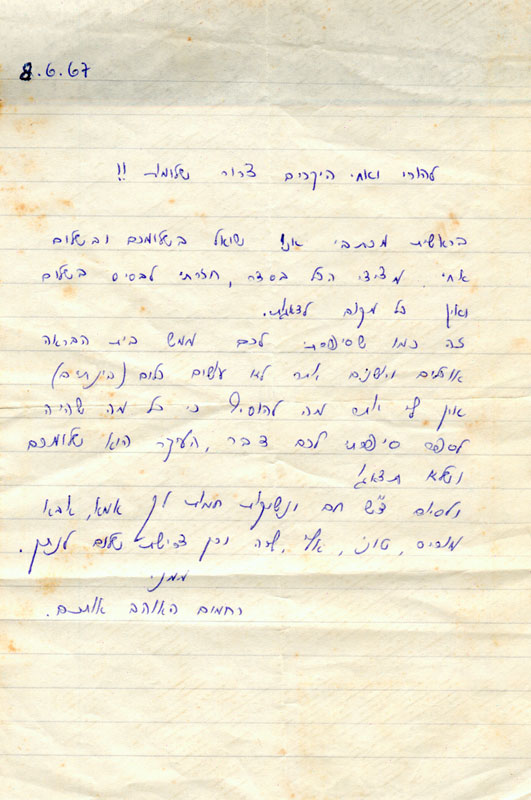 8.6.67
להורי ואחי היקרים צרור שלומות !!
בראשית מכתבי אני שואל בשלומכם ובשלום
אחי. מצידי הכל בסדר, חזרתי לבסיס בשלום
ואין כל מקום לדאגות.
זה כמו שסיפרתי לכם ממש בית הבראה
אוכלים וישנים ולא עושים כלום (בינתיים)
אין לי יותר מה להוסיף כי כל מה שהיה
לספר סיפרתי לכם דבר, העיקר הוא שלומכם
ושלא תדאגו
ולסיום ד"ש חם ונשיקות חמות לך אמא, אבא
מנחם, טוני, אלי, שרה וכן דרישת שלום לנתן.
ממני
רחמים האוהב אותכם.